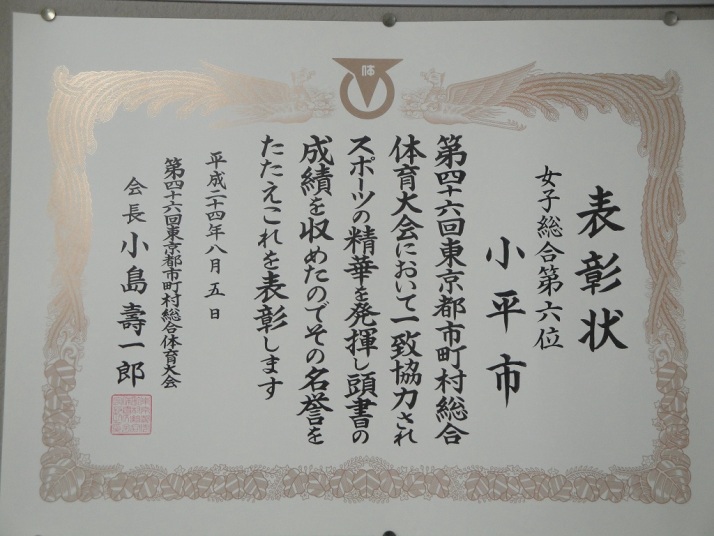 体
表彰状
女子総合第六位
小平市
第四十六回東京都市町村総合
体育大会において一致協力され
スポーツの精華を発揮し頭書の
成績を収めたのでその名誉を
たたえこれを表彰します
平成二十四年八月五日
第四十六回東京都市町村総合体育大会
会長 小島壽一郎